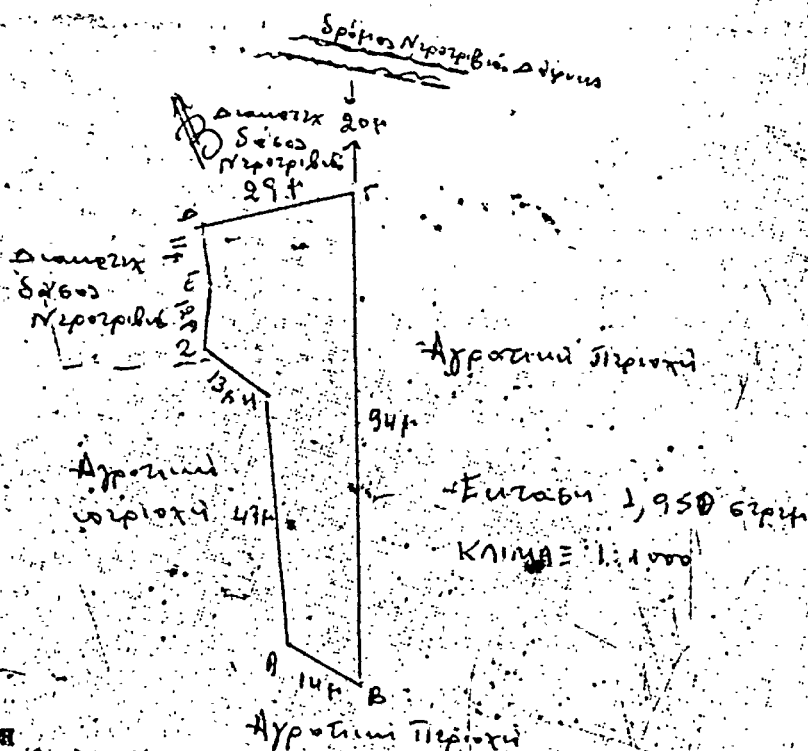 δρόμος Νεροτριβιάς Δάφνης
Β
Διακατεχ 20μ
δάσος
Νεροτριβιά
29
Δ
Γ
Διακατεχ
δάσος
Νεροτριβιά
Ε
Ζ
13μ
Η
Αγροτική Περιοχή
94μ
Αγροτική
περιοχή 43μ
Εκτάση 1,950 στρεμ
ΚΛΙΜΑΞ 1:1000
Α
14μ
Β
Αγροτική Περιοχή